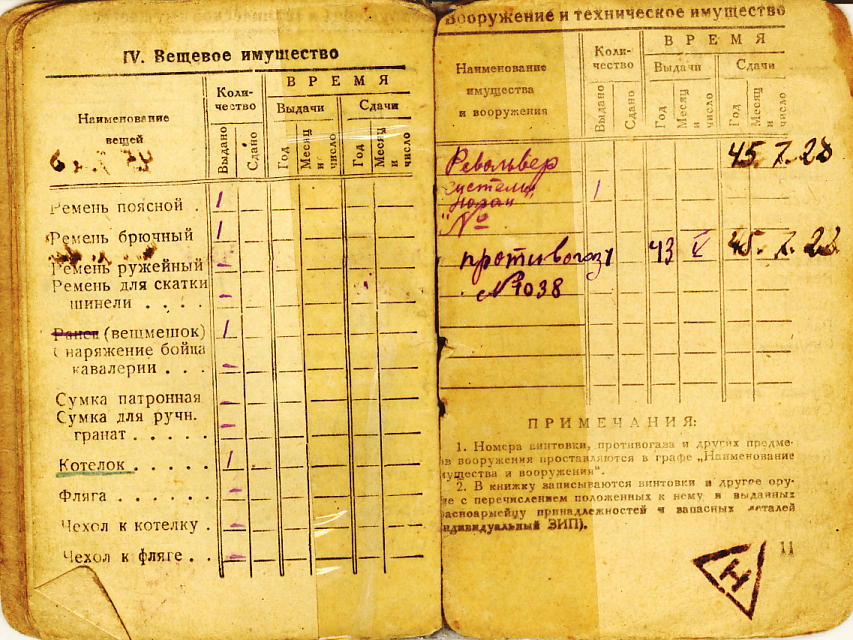 IV. Вещевое имущество
Наименование
вещей
Коли-
чество
ВРЕМЯ
Выдачи
Сдачи
Выдано
Сдано
Год
Месяц
и
число
Год
Месяц
и
число
Ремень поясной . 1
Ремень брючный 1
Ремень ружейный –
Ремень для скатки
шинели . . . . –
Ранец (вешмешок) 1
Снаряжение бойца
кавалерии . . . –
Сумка патронная –
Сумка для ручн.
гранат . . . . . –
Котелок . . . . . 1
Фляга . . . . . . –
Чехол к котелку . –
Чехол к фляге . . –
Вооружение и техническое имущество
Наименование
имущества
и вооружения
Коли-
чество
ВРЕМЯ
Выдачи
Сдачи
Выдано
Сдано
Год
Месяц
и
число
Год
Месяц
и
число
Револьвер 45. 7. 28
системы
"Наган" 1
№
противогаз 1 43 V 45. 7. 28
№ 1038
ПРИМЕЧАНИЯ:
1. Номера винтовки, противогаза и других предме-
ов вооружения проставляются в графе „Наименование
мущества и вооружения“.
2. В книжку записываются винтовки и другое ору-
ие с перечислением положенных к нему и выданных
расноармейцу принадлежностей и запасных деталей
ндивидуальный ЗИП).
11
Н